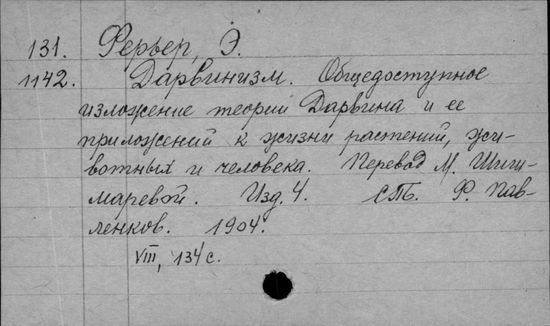 131. Ферьер, Э.
1142. Дарвинизм. Общедоступное
изложение теории Дарвина и ее
приложений к жизни растений, жи-
вотных и человека. Перевод М. Шиш-
маревой. Изд. 4. СПб. Ф. Пав-
ленков. 1904.
VIII, 134 с.